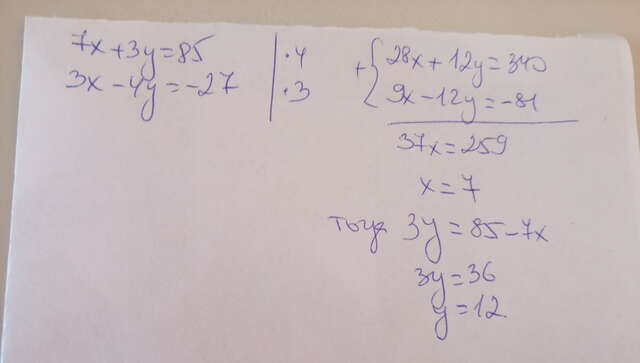 7x+3y=85 | ·4
3x-4y=-27 | ·3
+ { 28x+12y=340
9x-12y=-81
37x=259
x=7
тогда 3y=85-7x
3y=36
y=12